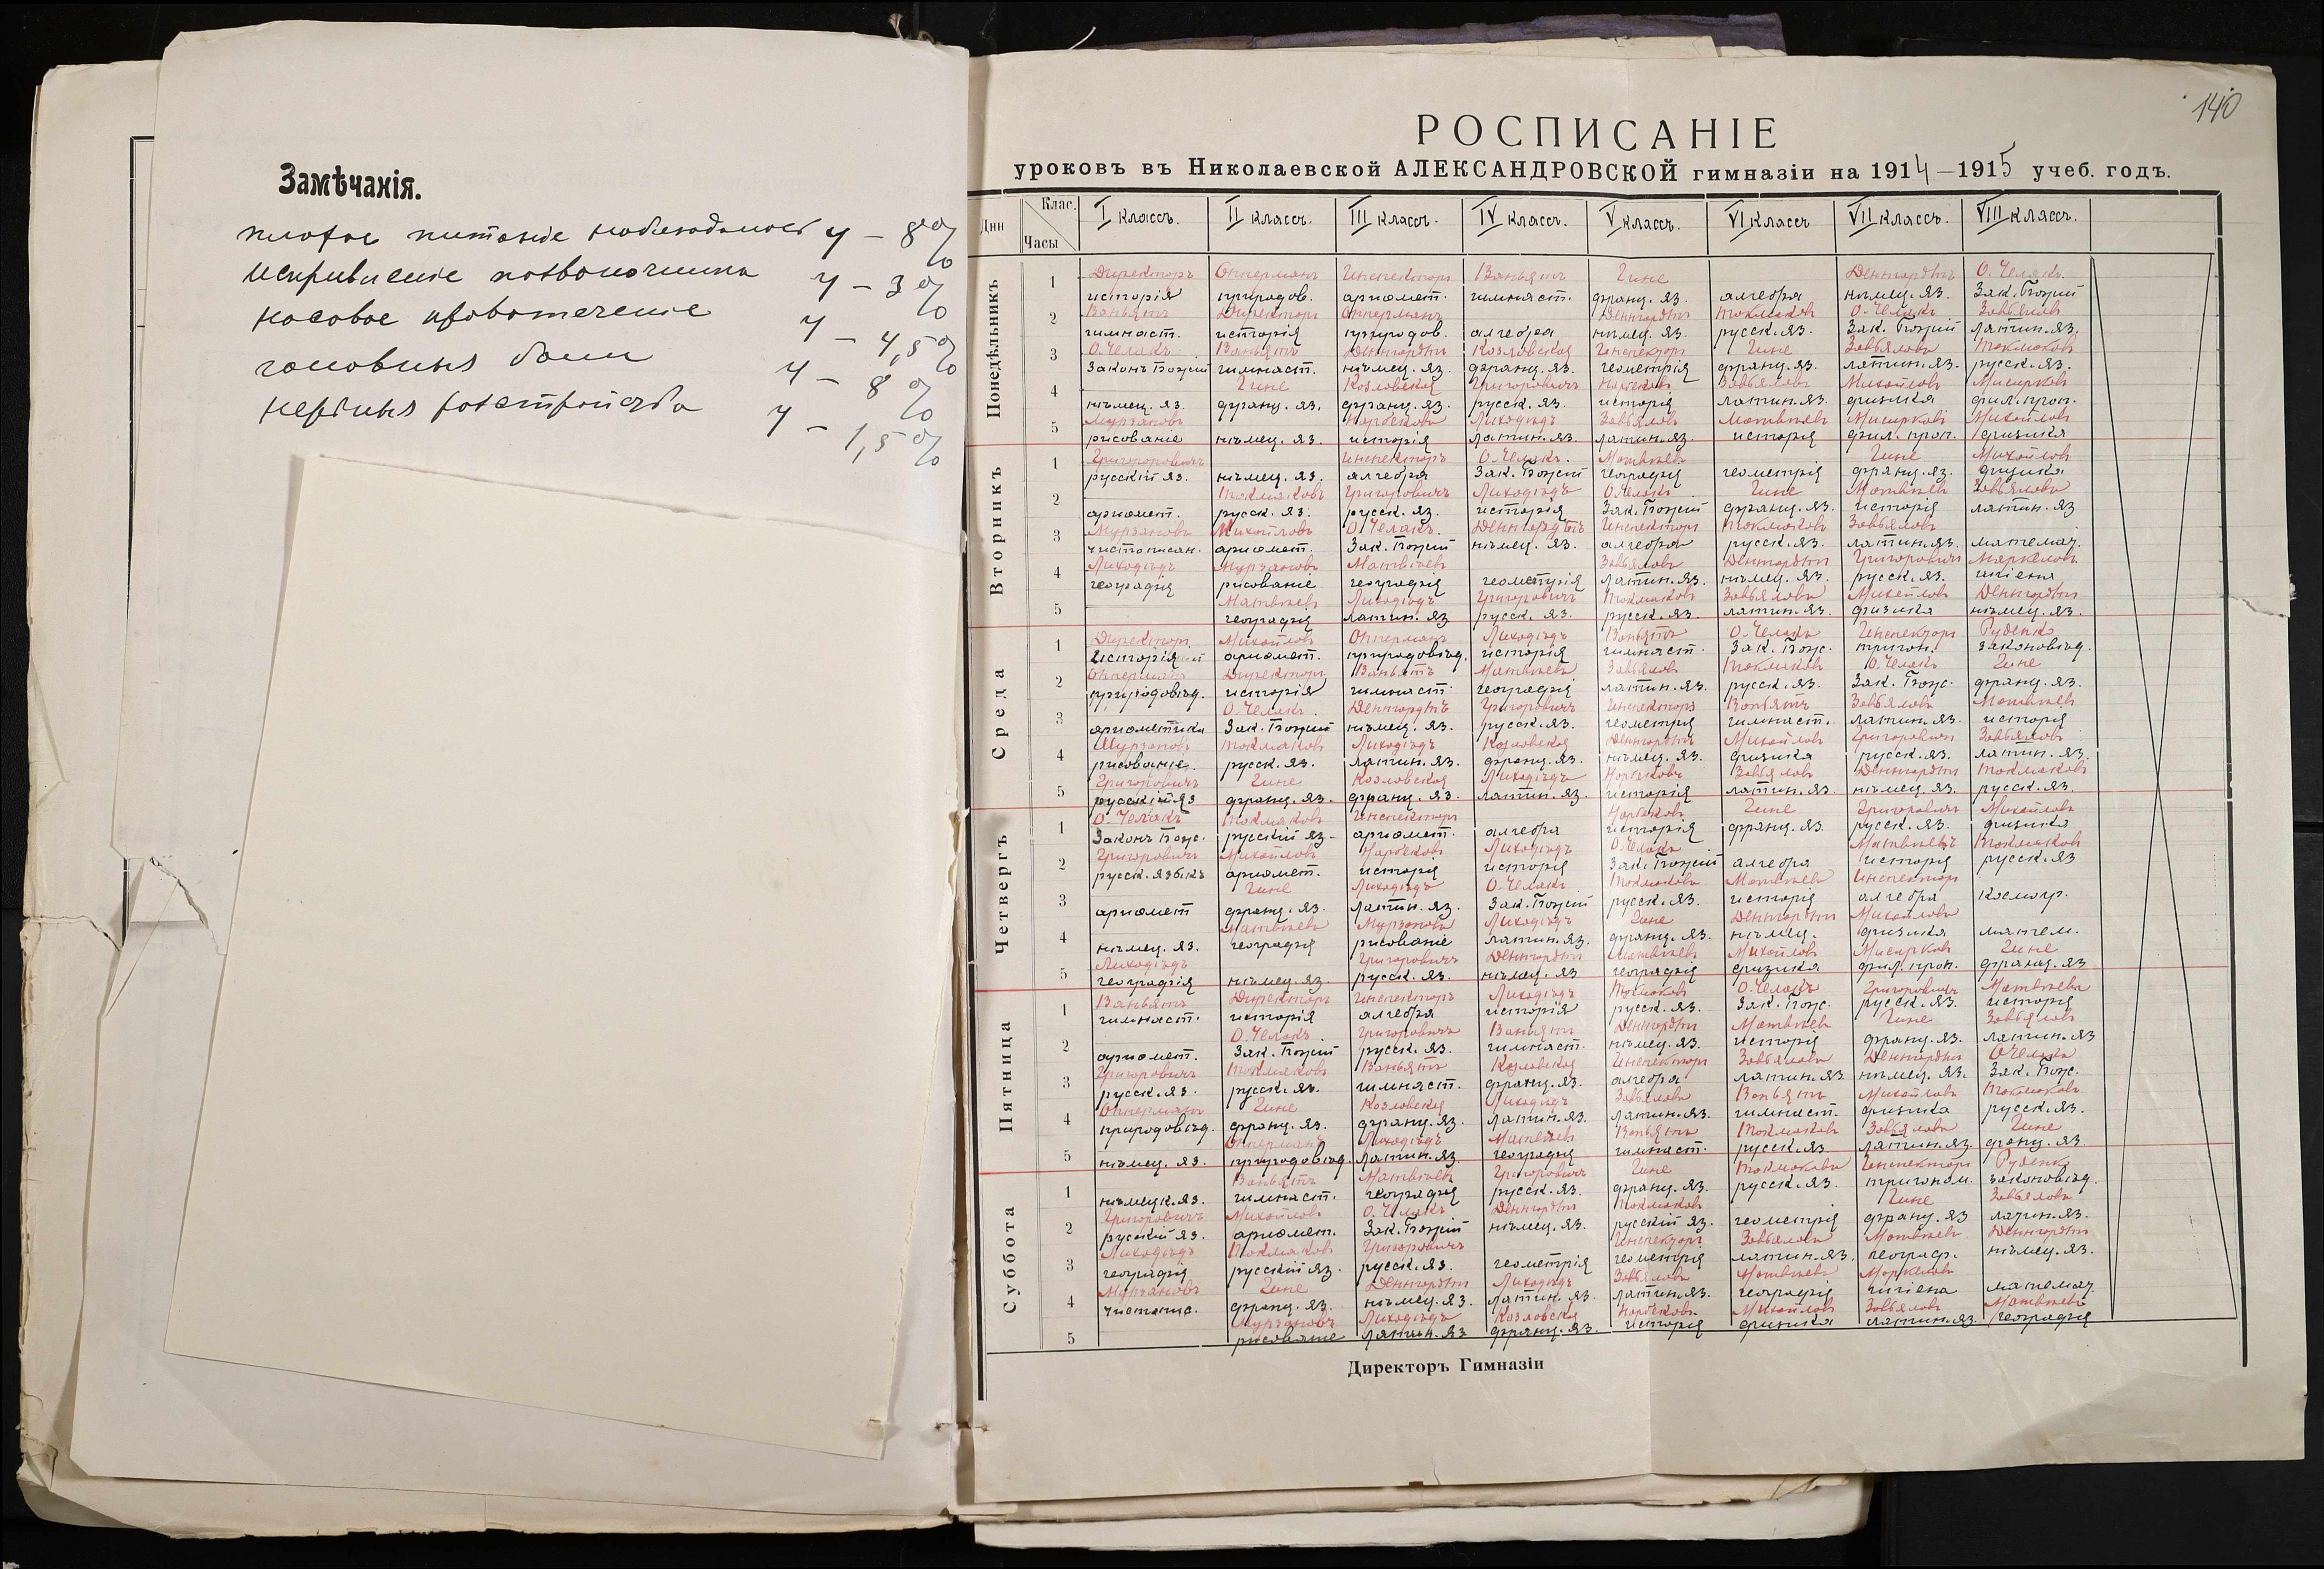 Замѣчанія.
плохое питаніе наблюдалось у – 8%
искривленіе позвоночника у – 3%
носовое кровотеченіе у – 4,5%
головныя боли у – 8%
нервныя разстройства у – 1,5%
140
РОСПИСАНІЕ
уроковъ въ Николаевской АЛЕКСАНДРОВСКОЙ гимназіи на 1914–1915 учеб. годъ.
Дни Часы Клас. I классъ. II классъ. III классъ. IV классъ. V классъ. VI классъ VII классъ. VIII классъ.
Понедѣльникъ
1 Директоръ Опперманъ Инспекторъ Ваньятъ Гине Деннгардтъ О. Челакъ.
исторія природов. ариѳмет. гимнаст. франц. яз. алгебра нѣмец. яз. Зак. Божій
2 Ваньятъ Директоръ Опперманъ Деннгардтъ Токмаковъ О. Челакъ Завьяловъ
гимнаст. исторія природов. алгебра нѣмец. яз. русск. яз. Зак. Божій латин. яз.
3 О. Челакъ Ваньятъ Деннгардтъ Козловская Инспекторъ Гине Завьяловъ Токмаковъ
Законъ Божій гимнаст. нѣмец. яз. франц. яз. геометрія франц. яз. латин. яз. русск. яз.
4 Гине Козловская Григоровичъ Завьяловъ Михайловъ Мисирковъ
нѣмец. яз. франц. яз. франц. яз. русск. яз. исторія латин. яз. физика фил. проп.
5 Мурзановъ Нарбековъ Лиходѣдъ Завьяловъ Матвѣевъ Мисирковъ Михайловъ
рисованіе нѣмец. яз. исторія латин. яз. латин. яз. исторія фил. проп. физика
Вторникъ
1 Григоровичъ Инспекторъ О. Челакъ. Матвѣевъ Гине Михайловъ
русскій яз. нѣмец. яз. алгебра Зак. Божій географія геометрія франц. яз. физика
2 Токмаковъ Григоровичъ Лиходѣдъ О. Челакъ Гине Матвѣевъ Завьяловъ
ариѳмет. русск. яз. русск. яз. исторія Зак. Божій франц. яз. исторія латин. яз
3 Мурзановъ Михайловъ О. Челакъ. Деннгардтъ Инспекторъ Токмаковъ Завьяловъ
чистописан. ариѳмет. Зак. Божій нѣмец. яз. алгебра русск. яз. латин. яз. математ.
4 Лиходѣдъ Мурзановъ Матвѣевъ Завьяловъ Деннгардтъ Григоровичъ Маркеловъ
географія рисованіе географія геометрія латин. яз. нѣмец. яз. русск. яз. гигіена
5 Матвѣевъ Лиходѣдъ Григоровичъ Токмаковъ Завьяловъ Михайловъ Деннгардтъ
география латин. яз русск. яз. русск. яз. латин. яз. физика нѣмец. яз.
Среда
1 Директоръ Михайловъ Опперманъ Лиходѣдъ Ваньятъ О. Челакъ Инспекторъ Руденко
исторія ариѳмет. природовѣд. исторія гимнаст. Зак. Бож. тригон. законовѣд.
2 Опперманъ Директоръ Ваньятъ Матвѣевъ Завьяловъ Токмаковъ О. Челакъ Гине
природовѣд. исторія гимнаст. географія латин. яз. русск. яз. Зак. Бож. франц. яз.
3 О. Челакъ. Деннгардтъ Григоровичъ Инспекторъ Ваньятъ Завьяловъ Матвѣевъ
ариѳметика Зак. Божій нѣмец. яз. русск. яз. геометрія гимнаст. латин. яз. исторія
4 Мурзановъ Токмаковъ Лиходѣдъ Козловская Деннгардтъ Михайловъ Григоровичъ Завьяловъ
рисованіе. русск. яз. латин. яз. франц. яз. нѣмец. яз. физика русск. яз. латин. яз.
5 Григоровичъ Гине Козловская Лиходѣдъ Нарбековъ Завьяловъ Деннгардтъ Токмаковъ
русскій яз франц. яз. франц. яз. латин. яз. исторія латин. яз. нѣмец. яз. русск. яз.
Четвергъ
1 О. Челакъ Токмаковъ Инспекторъ Нарбековъ Гине Григоровичъ Михайловъ
Законъ Бож. русскій яз. ариѳмет. алгебра исторія франц. яз. русск. яз. физика
2 Григоровичъ Михайловъ Нарбековъ Лиходѣдъ О. Челакъ Матвѣевъ Токмаковъ
русск. языкъ ариѳмет. исторія исторія Зак. Божій алгебра исторія русск. яз
3 Гине Лиходѣдъ О. Челакъ Токмаковъ Матвѣевъ Инспекторъ
ариѳмет франц. яз. латин. яз. Зак. Божій русск. яз. исторія алгебра космогр.
4 Матвѣевъ Мурзановъ Лиходѣдъ Гине Деннгардтъ Михайловъ
нѣмец. яз. географія рисованіе латин. яз. франц. яз. нѣмец. физика матем.
5 Лиходѣдъ Григоровичъ Деннгардтъ Матвѣевъ Михайловъ Мисирковъ Гине
географія нѣмец. яз. русск. яз. нѣмец. яз географія физика фил. проп. франц. яз
Пятница
1 Ваньятъ Директоръ Инспекторъ Лиходѣдъ Токмаковъ О. Челакъ Григоровичъ Матвѣевъ
гимнаст. исторія алгебра исторія русск. яз. Зак. Бож. русск. яз. исторія
2 О. Челакъ. Григоровичъ Ваньятъ Деннгардтъ Матвѣевъ Гине Завьяловъ
ариѳмет. Зак. Божій русск. яз. гимнаст. нѣмец. яз. исторія франц. яз. латин. яз
3 Григоровичъ Токмаковъ Ваньятъ Козловская Инспекторъ Завьяловъ Деннгардтъ О Челакъ
русск. яз. русск. яз. гимнаст. франц. яз. алгебра латин. яз. нѣмец. яз. Зак. Бож.
4 Опперманъ Гине Козловская Лиходѣдъ Завьяловъ Ваньятъ Михайловъ Токмаковъ
природовѣд. франц. яз. франц. яз. латин. яз. латин. яз. гимнаст. физика русск. яз.
5 Опперманъ Лиходѣдъ Матвѣевъ Ваньятъ Токмаковъ Завьяловъ Гине
нѣмец. яз. природовѣд. латин. яз. географія гимнаст. русск. яз. латин. яз. франц. яз.
Суббота
1 Ваньятъ Матвѣевъ Григоровичъ Гине Токмаковъ Инспекторъ Руденко
нѣмецк. яз. гимнаст. географія русск. яз. франц. яз. русск. яз. тригоном. законовѣд.
2 Григоровичъ Михайловъ О. Челакъ Деннгардтъ Токмаковъ Гине Завьяловъ
русскій яз. ариѳмет. Зак. Божій нѣмец. яз. русскій яз. геометрія франц. яз латин. яз.
3 Лиходѣдъ Токмаковъ Григоровичъ Инспекторъ Завьяловъ Матвѣевъ Деннгардтъ
географія русскій яз. русск. яз. геометрія геометрія латин. яз. географ. нѣмец. яз.
4 Мурзановъ Гине Деннгардтъ Лиходѣдъ Завьяловъ Матвѣевъ Маркеловъ
чистопис. франц. яз. нѣмец. яз. латин. яз. латин. яз. географія гигіена математ.
5 Мурзановъ Лиходѣдъ Козловская Нарбековъ Михайловъ Завьяловъ Матвѣевъ
рисованіе латин. яз франц. яз. исторія физика латин. яз. географія
Директоръ Гимназіи